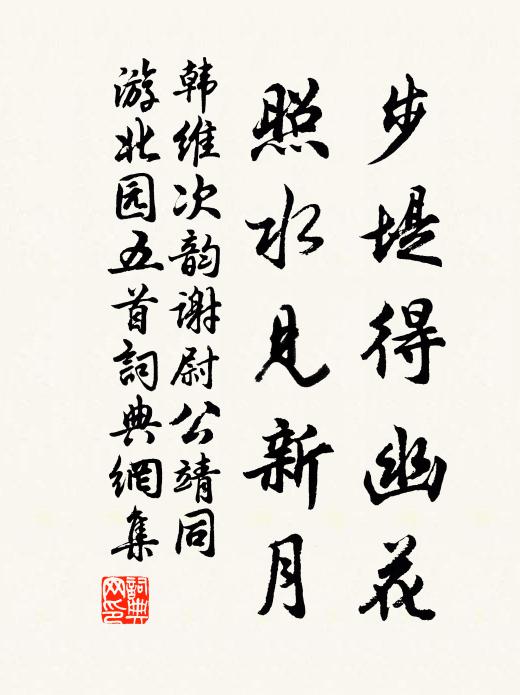 步堤得幽花
照水见新月
韩维次韵谢尉公靖同
游北园五首詞典網集
詞典
网印